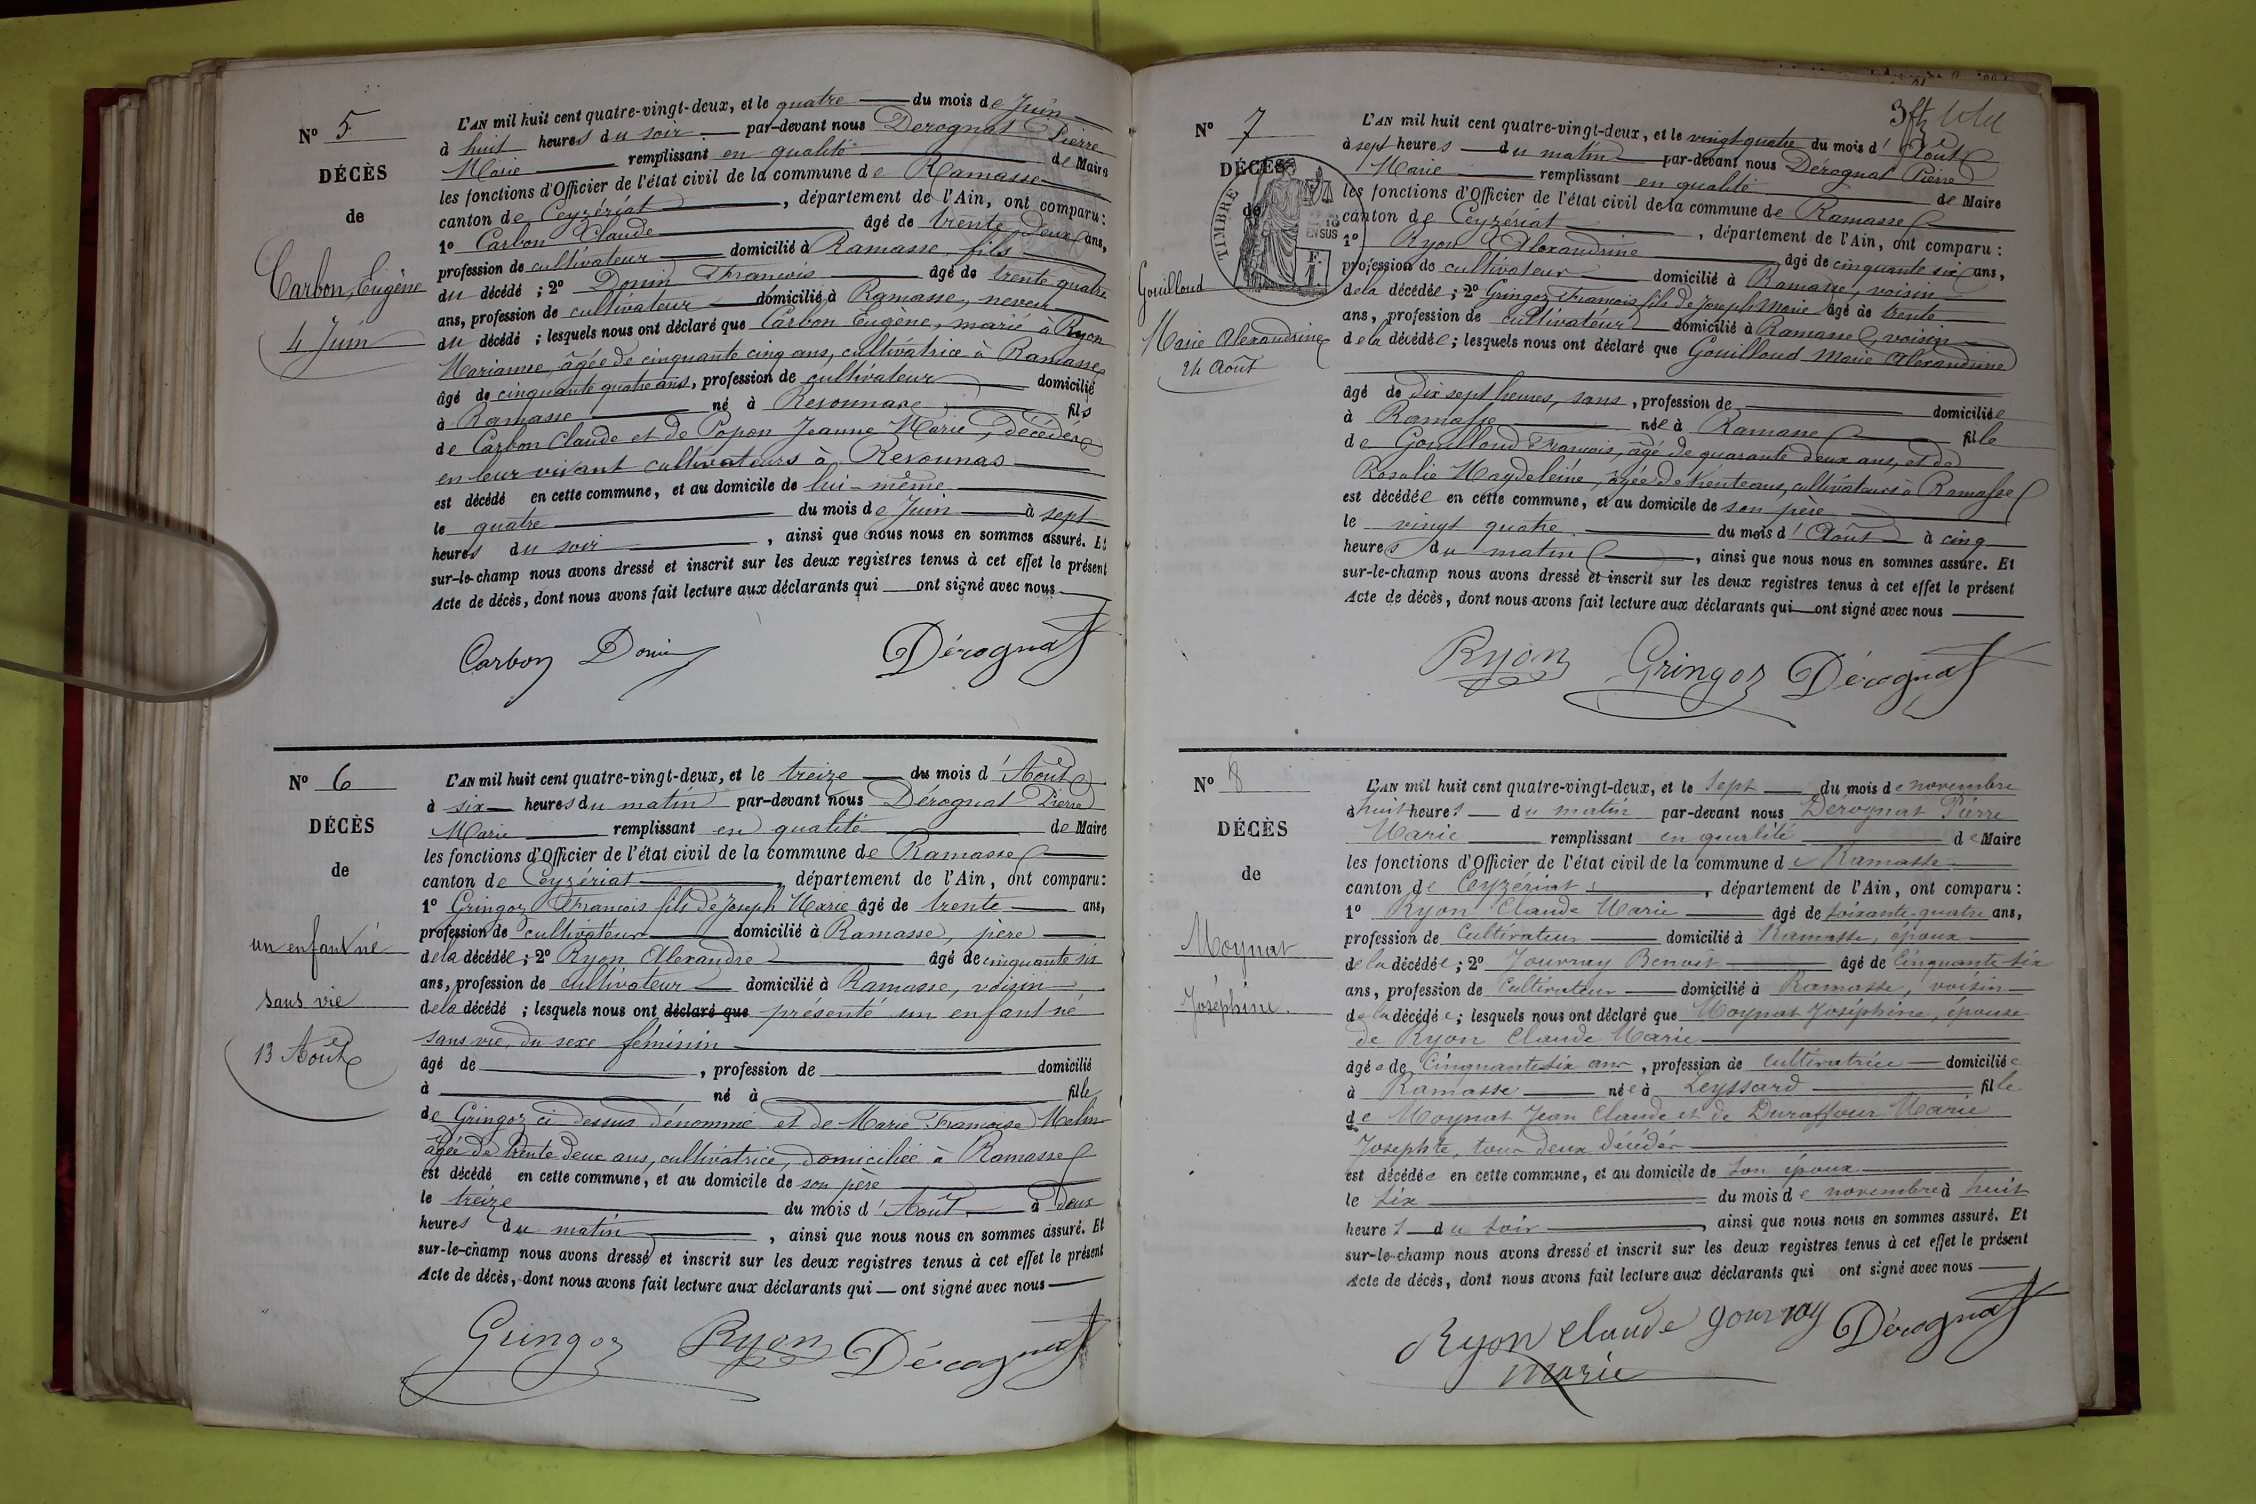 N° 5
DÉCÈS
de
Carbon, Eugène
4 Juin
L'AN mil huit cent quatre-vingt-deux, et le quatre du mois de Juin
à huit heures du soir par-devant nous Derognat Pierre
Marie remplissant en qualité de Maire
les fonctions d'Officier de l'état civil de la commune de Ramasse
canton de Ceyzériat, département de l'Ain, ont comparu :
1° Carbon Claude âgé de trente deux ans,
profession de cultivateur domicilié à Ramasse, fils
du décédé ; 2° Donin François âgé de trente quatre
ans, profession de cultivateur domicilié à Ramasse, neveu
du décédé ; lesquels nous ont déclaré que Carbon Eugène, marié à Ryon
Marianne, âgée de cinquante cinq ans, cultivatrice à Ramasse
âgé de cinquante quatre ans, profession de cultivateur domicilié
à Ramasse né à Revonnas fils
de Carbon Claude et de Popon Jeanne Marie, décédés
en leur vivant cultivateurs à Revonnas
est décédé en cette commune, et au domicile de lui-même
le quatre du mois de Juin à sept
heures du soir, ainsi que nous nous en sommes assuré. Et
sur-le-champ nous avons dressé et inscrit sur les deux registres tenus à cet effet le présent
Acte de décès, dont nous avons fait lecture aux déclarants qui ont signé avec nous
Carbon Donin Dérognat
N° 6
DÉCÈS
de
un enfant né
sans vie
13 Août
L'AN mil huit cent quatre-vingt-deux, et le treize du mois d'Août
à six heures du matin par-devant nous Dérognat Pierre
Marie remplissant en qualité de Maire
les fonctions d'Officier de l'état civil de la commune de Ramasse
canton de Ceyzériat, département de l'Ain, ont comparu :
1° Gringoz François fils de Joseph Marie âgé de trente ans,
profession de cultivateur domicilié à Ramasse, père
de la décédée ; 2° Ryon Alexandre âgé de cinquante six
ans, profession de cultivateur domicilié à Ramasse, voisin
de la décédé ; lesquels nous ont déclaré que présenté un enfant né
sans vie, du sexe féminin
âgé de , profession de domicilié
à né à fille
de Gringoz ci dessus dénommé et de Marie Françoise
âgée de trente deux ans, cultivatrice, domiciliée à Ramasse
est décédé en cette commune, et au domicile de son père
le treize du mois d'Août à deux
heures du matin, ainsi que nous nous en sommes assuré. Et
sur-le-champ nous avons dressé et inscrit sur les deux registres tenus à cet effet le présent
Acte de décès, dont nous avons fait lecture aux déclarants qui ont signé avec nous
Gringoz Ryon Dérognat
3
N° 7
DÉCÈS
de
TIMBRE
EN SUS
Gouilloud
Marie Alexandrine
24 Août
L'AN mil huit cent quatre-vingt-deux, et le vingt quatre du mois d'Août
à sept heures du matin par-devant nous Dérognat Pierre
Marie remplissant en qualité de Maire
les fonctions d'Officier de l'état civil de la commune de Ramasse
canton de Ceyzériat, département de l'Ain, ont comparu :
1° Ryon Alexandrine âgé de cinquante six ans,
profession de cultivateur domicilié à Ramasse, voisin
de la décédée ; 2° Gringoz François fils de Joseph Marie âgé de trente
ans, profession de cultivateur domicilié à Ramasse, voisin
de la décédée ; lesquels nous ont déclaré que Gouilloud Marie Alexandrine
âgé de dix sept heures, sans, profession de domiciliée
à Ramasse née à Ramasse fille
de Gouilloud François, âgé de quarante deux ans, et de
Rosalie Magdeleine, âgée de trente ans, cultivateurs à Ramasse
est décédée en cette commune, et au domicile de son père
le vingt quatre du mois d'Août à cinq
heures du matin, ainsi que nous nous en sommes assuré. Et
sur-le-champ nous avons dressé et inscrit sur les deux registres tenus à cet effet le présent
Acte de décès, dont nous avons fait lecture aux déclarants qui ont signé avec nous
Ryon Gringoz Dérognat
N° 8
DÉCÈS
de
Moynat
Joséphine.
L'AN mil huit cent quatre-vingt-deux, et le sept du mois de novembre
à huit heures du matin par-devant nous Dérognat Pierre
Marie remplissant en qualité de Maire
les fonctions d'Officier de l'état civil de la commune de Ramasse
canton de Ceyzériat, département de l'Ain, ont comparu :
1° Ryon Claude Marie âgé de soixante-quatre ans,
profession de Cultivateur domicilié à Ramasse, époux
de la décédée ; 2° Jouvray Benoit âgé de Cinquante six
ans, profession de Cultivateur domicilié à Ramasse, voisin
de la décédée ; lesquels nous ont déclaré que Moynat Joséphine, épouse
de Ryon Claude Marie
âgée de Cinquante six ans, profession de cultivatrice domiciliée
à Ramasse née à Leyssard fille
de Moynat Jean Claude et de Duraffour Marie
Josephte, tous deux décédés
est décédée en cette commune, et au domicile de son époux
le six du mois de novembre à huit
heures du soir, ainsi que nous nous en sommes assuré. Et
sur-le-champ nous avons dressé et inscrit sur les deux registres tenus à cet effet le présent
Acte de décès, dont nous avons fait lecture aux déclarants qui ont signé avec nous
Ryon Claude Gourray Dérognat
Marie